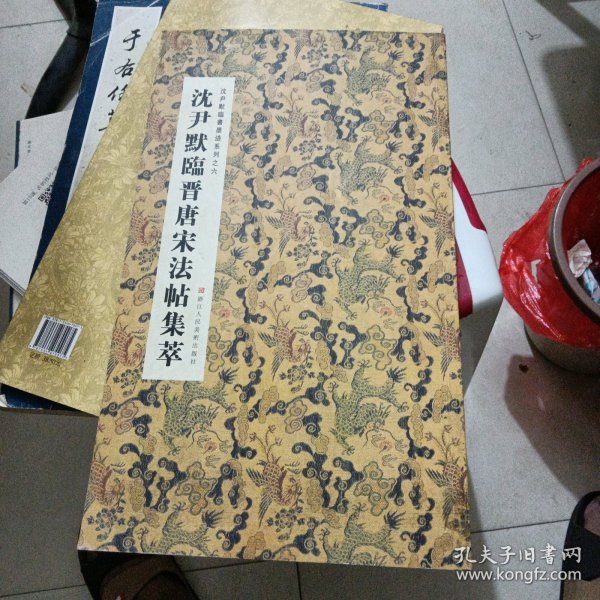 沈尹默臨書墨迹系列之六
沈尹默臨晋唐宋法帖集萃
浙江人民美術出版社
于右任
孔夫子旧书网
www.kongfz.com